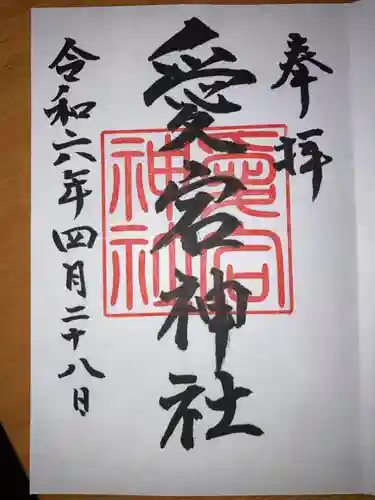 奉拝
愛宕神社
愛宕神社
令和六年四月二十八日